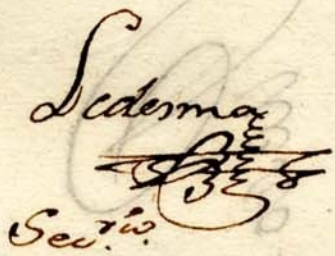 Ledesma
Secrio.